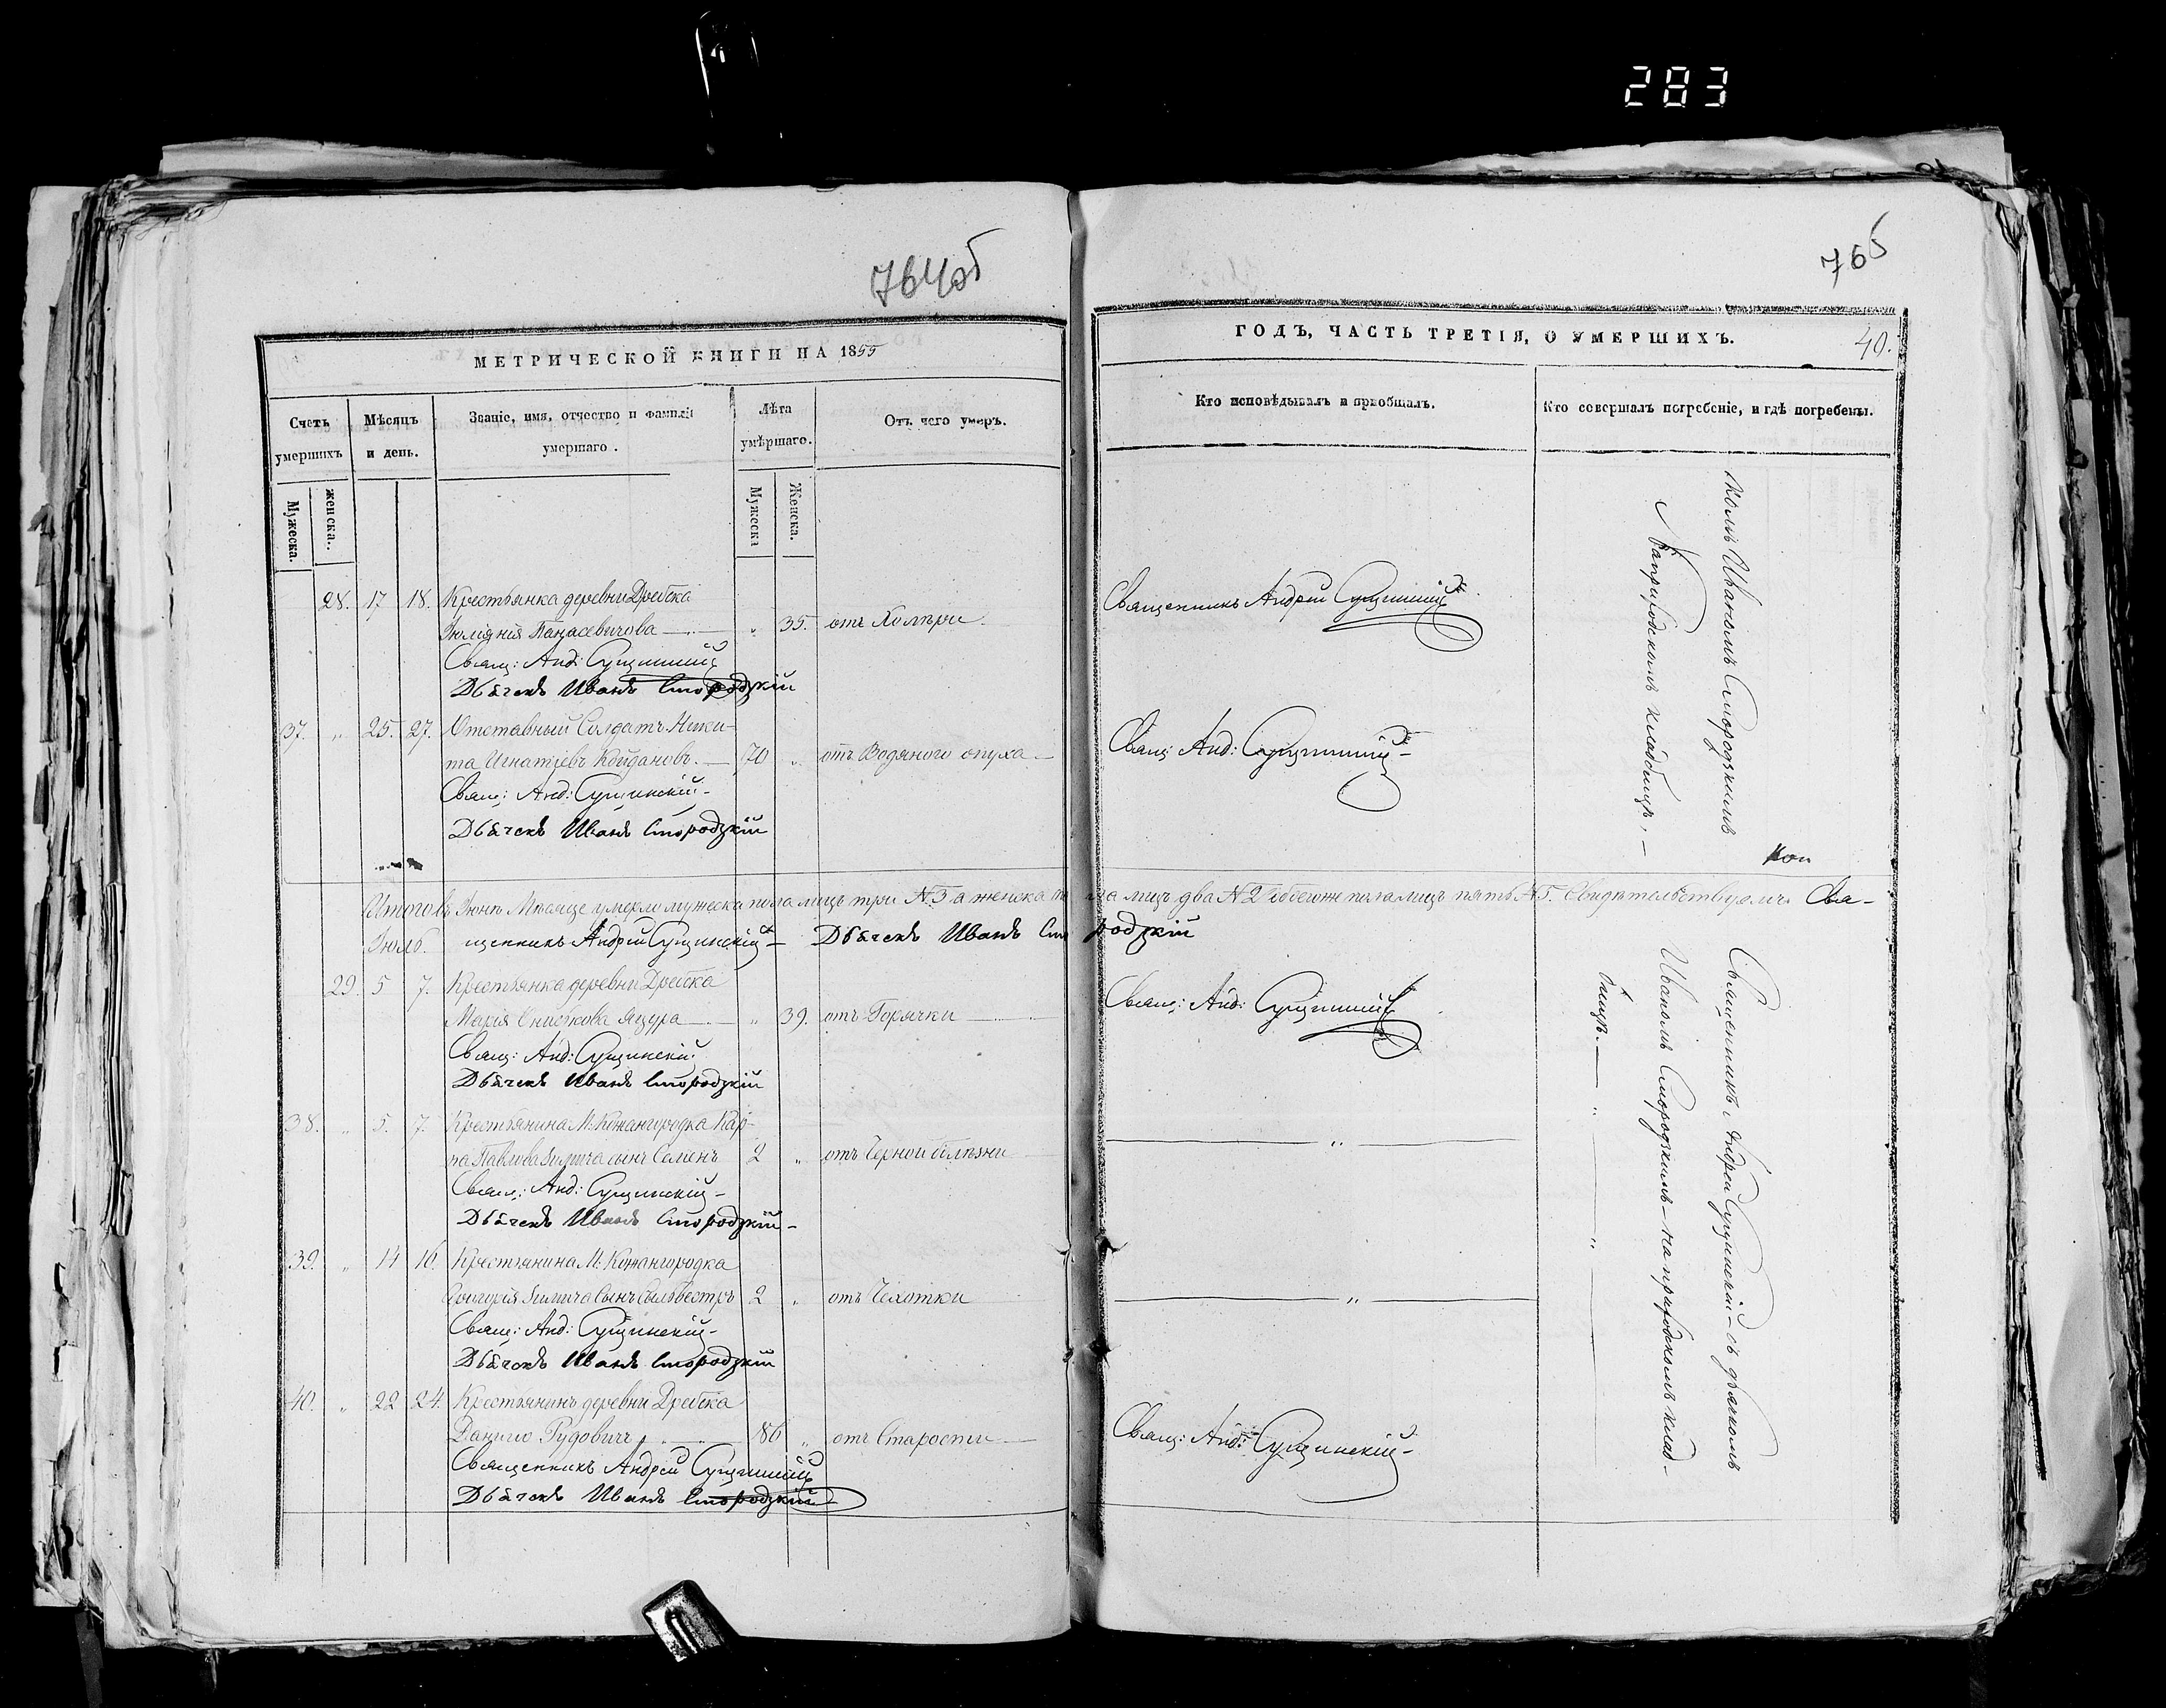 283
764об
765
МЕТРИЧЕСКОЙ КНИГИ НА 1855
ГОДЪ, ЧАСТЬ ТРЕТІЯ, О УМЕРШИХЪ.
40.
Счетъ умершихъ
Мѣсяцъ и день.
Званіе, имя, отчество и фамилія умершаго.
Лѣта умѣршаго.
Отъ чего умеръ.
Кто исповѣдывалъ и пріобщалъ.
Кто совершалъ погребеніе, и гдѣ погребены.
Мужеска.
женска.
Мужеска
Женска.
28. 17 18. Крестьянка деревни Дребска
Іюліянія Панасевичова „ 35. отъ Холѣри
Свящ: Анд: Сущинскій
Дьячекъ Иванъ Смородзкій
Священникъ Андрей Сущинскій
37. „ 25. 27. Отставный Солдатъ Ники-
та Игнатіевъ Койдановъ. 70 „ отъ Водяного опуха
Свящ: Анд: Сущинскій
Дьячекъ Иванъ Смородзкій
Свящ: Анд: Сущинскій
комъ Иваномъ Смородзкимъ
На приходскомъ кладбищѣ,
Итого въ Іюнѣ Мѣсяце умерло мужеска пола лицъ три N 3 а женска по ла лицъ два N 2 обоего пола лицъ пять N 5. Свидѣтельствуемъ Свя-
щенникъ Андрей Сущинскій Дьячекъ Иванъ Смо родзкій
Іюль.
29. 5 7. Крестьянка деревни Дребска
Марія Яцура „ 39. отъ Горячки
Свящ: Анд: Сущинскій
Дьячекъ Иванъ Смородзкій
Свящ: Анд: Сущинскій
38. „ 5. 7. Крестьянина М: Кожангородка Кар-
па Павлова сынъ Семенъ 2 „ отъ Черной
Свящ: Анд: Сущинскій
Дьячекъ Иванъ Смородзкій
39. „ 14 16. Крестьянина М: Кожангородка
Григорія Сынъ Сильвестръ 2 „ отъ Чехотки
Свящ: Анд: Сущинскій
Дьячекъ Иванъ Смородзкій
40. „ 22 24. Крестьянинъ деревни Дребска
Данило Рудовичъ 86 „ отъ Старости
Священникъ Андрей Сущинскій
Дьячекъ Иванъ Смородзкій
Свящ: Анд: Сущинскій
Священникъ Андрей Сущинскій съ дьячкомъ
Иваномъ Смородзкимъ на приходскомъ клад-
бищѣ.